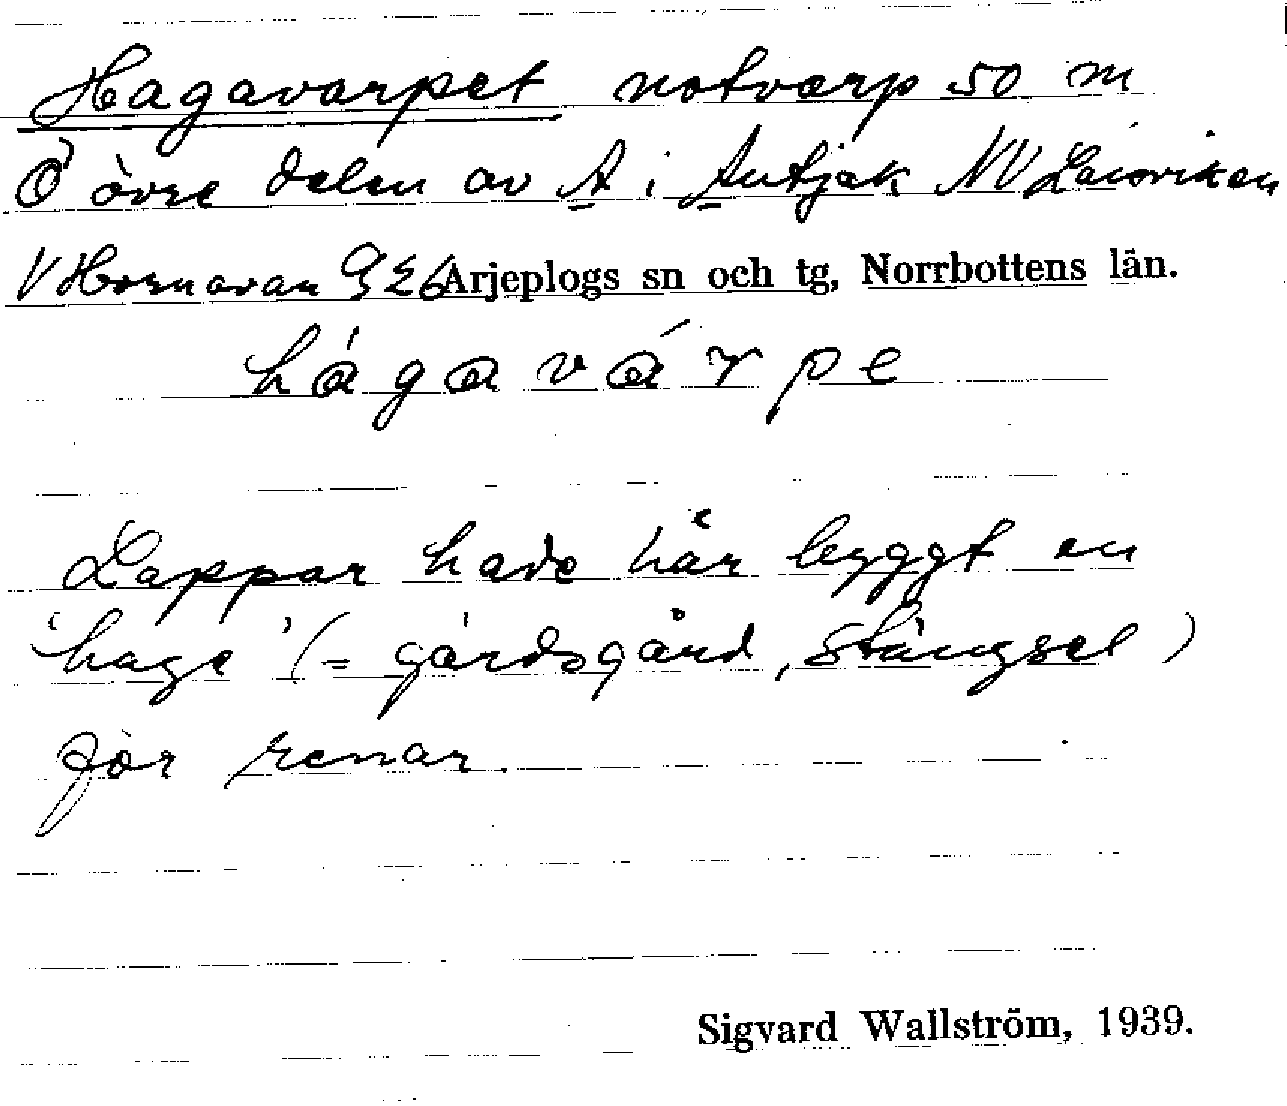 Hagavarpet notvarp 50 m
Ö övre delen av A i Autjak NV Laisviken
V Hornavan G26 Arjeplogs sn och tg, Norrbottens län.
hágavárpe
Lappar hade här byggt en
'hage' (= gärdsgård, stängsel)
för renar
Sigvard Wallström, 1939.